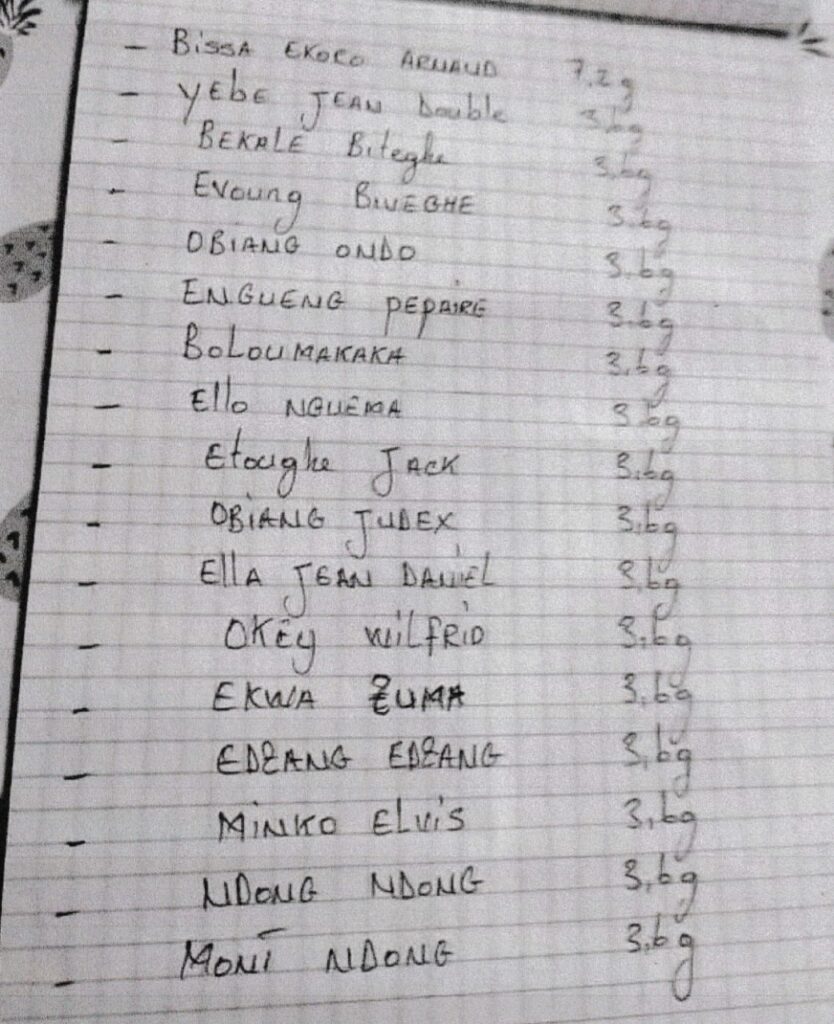 - BISSA EKOCO ARNAUD 7,2g
- YEbE JEAN Double 3,6g
- BEKALE Biteghe 3,6g
- Evoung BIVEGHE 3,6g
- OBIANG ONDO 3,6g
- ENGUENG PEPAIRE 3,6g
- BOLOUMAKAKA 3,6g
- Ello NGUEMA 3,6g
- Etoughe JACK 3,6g
- OBIANG JUDEX 3,6g
- EllA JEAN DANIEL 3,6g
- OKEY WILFRID 3,6g
- EKWA ZUMA 3,6g
- EDZANG EDZANG 3,6g
- MINKO ELVIS 3,6g
- NDONG NDONG 3,6g
- MONI NDONG 3,6g